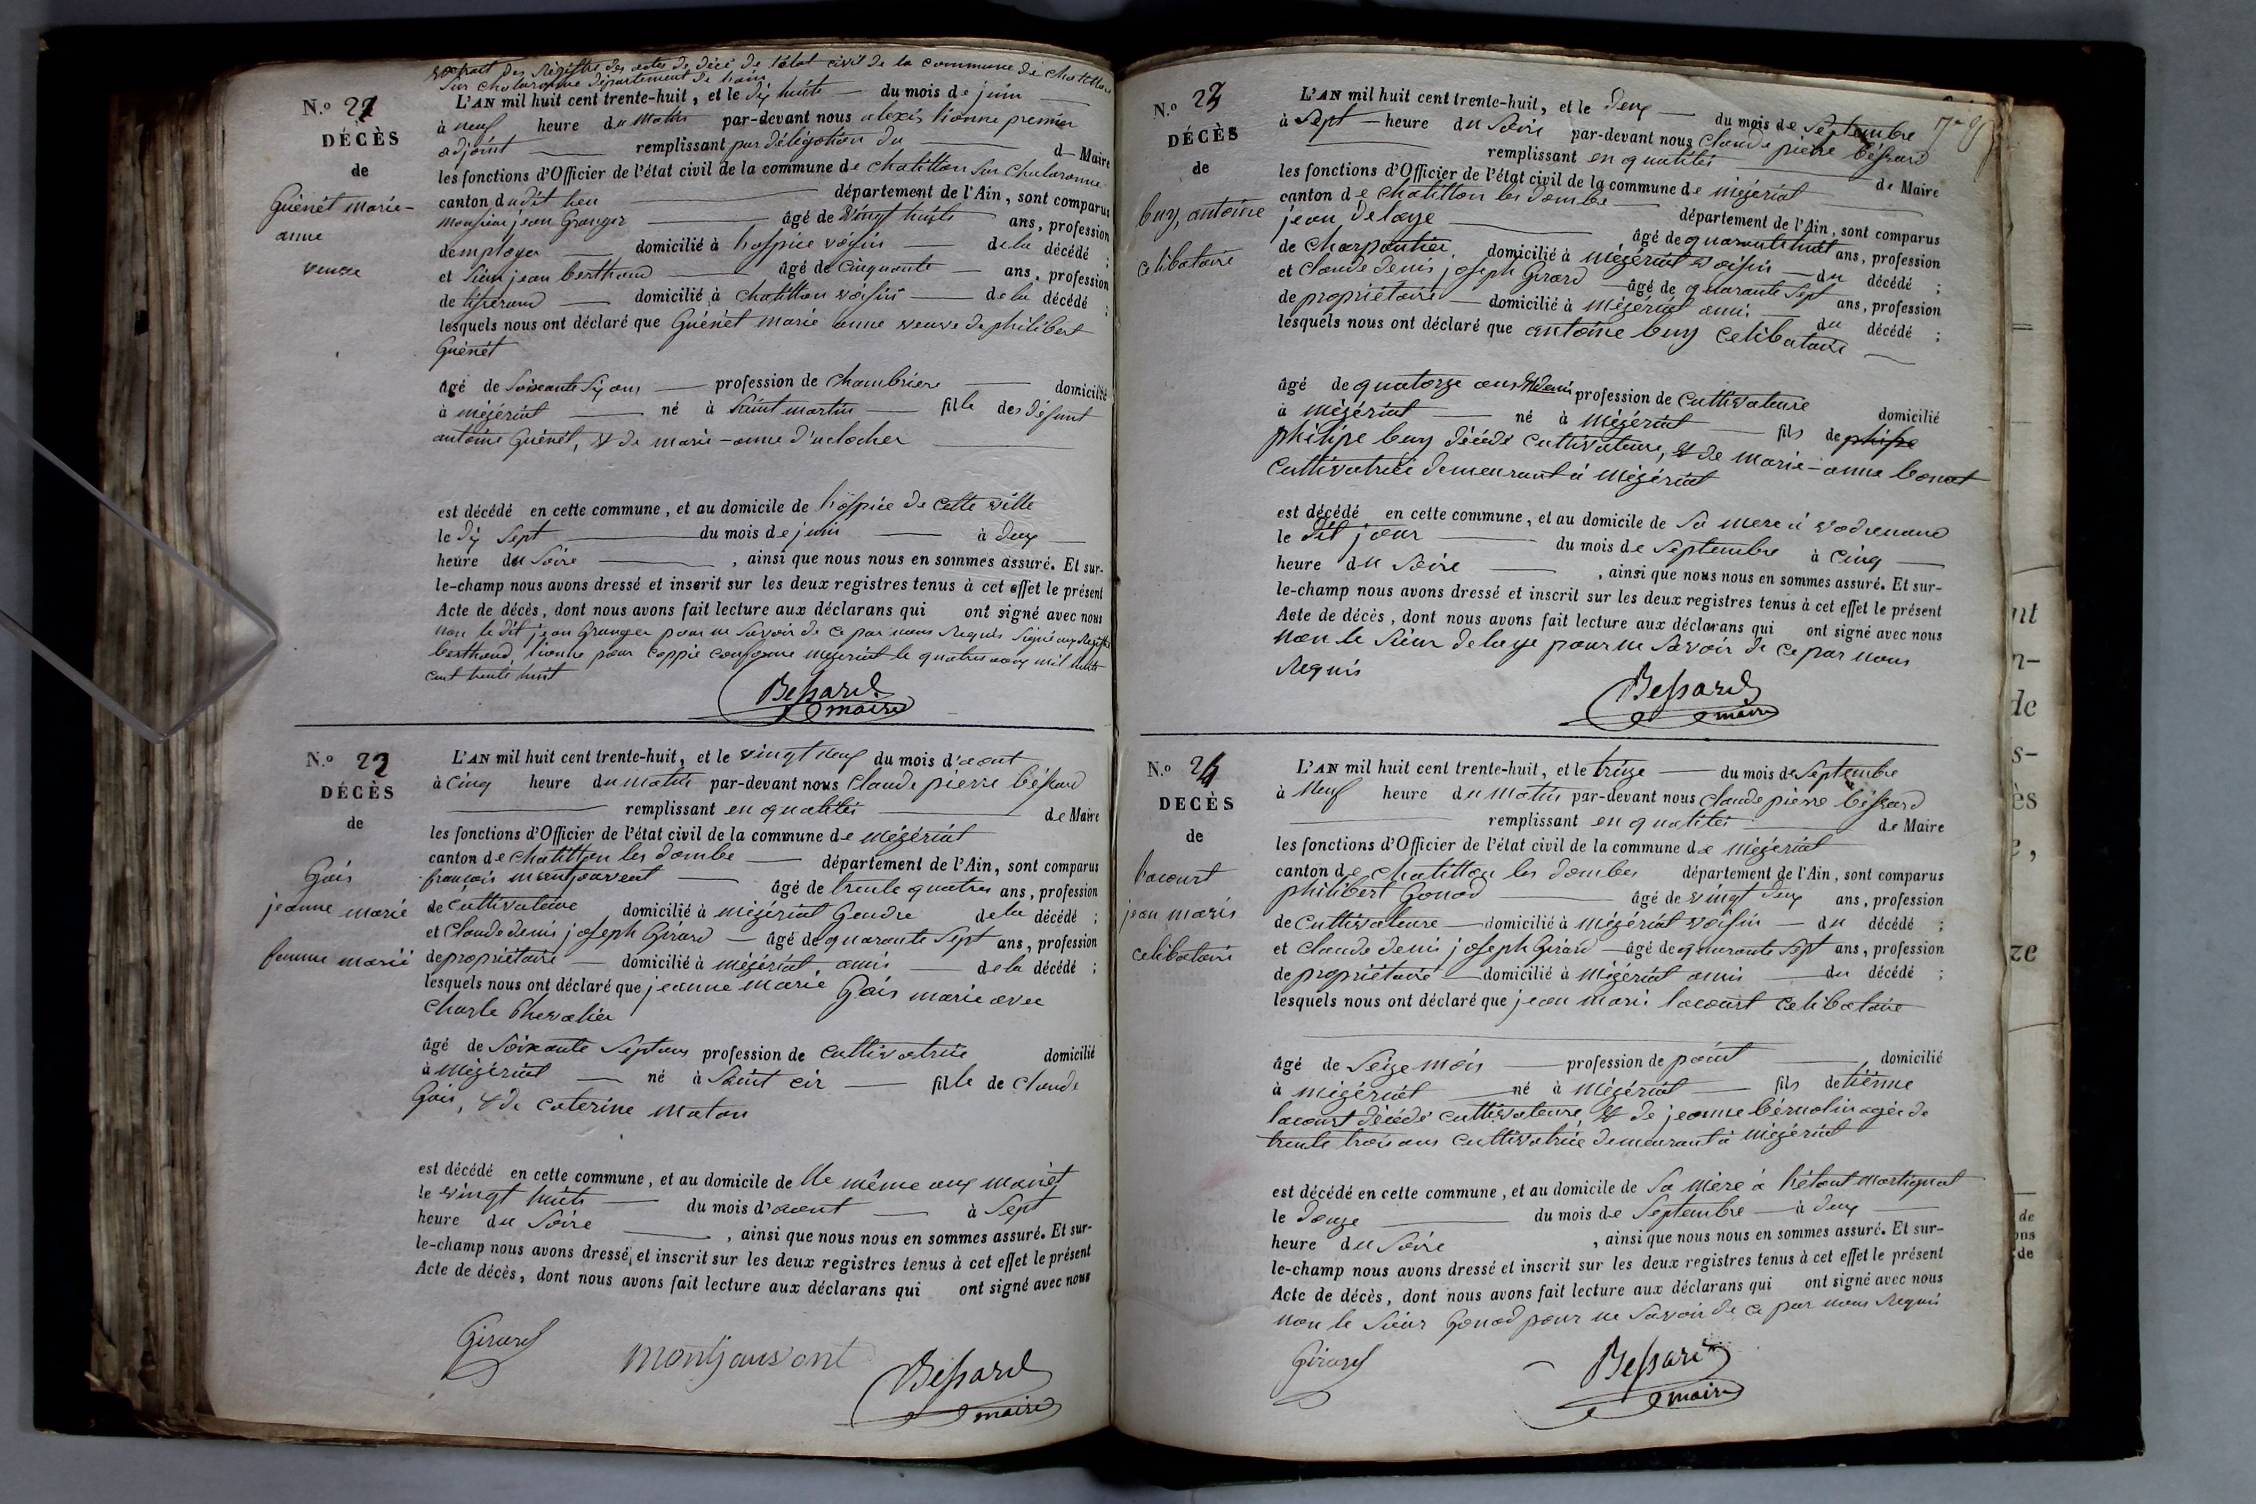 Extrait des Régistre des actes de décé de l'état civil de la commune de chatillon
sur chalaronne département de l'ain
N.o 21
DÉCÈS
de
Guénét marie-
anne
veuve
L'AN mil huit cent trente-huit, et le dix huite du mois de juin
à neuf heure du matin par-devant nous alexis lionne premier
adjoint remplissant par délégation du d Maire
les fonctions d'Officier de l'état civil de la commune de chatillon sur chalaronne
canton dudit lieu département de l'Ain, sont comparus
monsieur jean Granger âgé de vingt huite ans, profession
demployer domicilié à l'hospice voisin de la décédé ;
et sieur jean berthaud âgé de cinquante ans, profession
de tisserand domicilié à chatillon voisin de la décédé ;
lesquels nous ont déclaré que Guénét marie anne veuve de philibert
Guénét
âgé de soixante six ans profession de chambrière domicilié
à mézériat né à saint martin fille des défunt
antoine Guénét, et de marie-anne d'uclocher
est décédé en cette commune, et au domicile de l'hospice de cette ville
le dix sept du mois de juin à deux
heure du soire , ainsi que nous nous en sommes assuré. Et sur-
le-champ nous avons dressé et inscrit sur les deux registres tenus à cet effet le présent
Acte de décès, dont nous avons fait lecture aux déclarans qui ont signé avec nous
non le dit jean Granger pour ne savoir de ce par nous requis signé aux
berthaud, lionne pour coppie conforme mézériat le quatre aoux mil huite
cent trente huit
Bessard
maire
N.o 22
DÉCÈS
de
Gois
jeanne marie
femme marié
L'AN mil huit cent trente-huit, et le vingt neuf du mois d'aout
à cinq heure du matin par-devant nous claude pierre béssard
remplissant en qualités de Maire
les fonctions d'Officier de l'état civil de la commune de mézériat
canton de chatillon les dombe département de l'Ain, sont comparus
françois montjouvent âgé de trente quatre ans, profession
de cultivateure domicilié à mézériat Gendre de la décédé ;
et Claude denis joseph Girard âgé de quarante sept ans, profession
de propriétaire domicilié à mézériat, amis de la décédé ;
lesquels nous ont déclaré que jeanne marie Gois marié avec
charle Chevalier
âgé de soixante sept ans profession de cultivatrice domicilié
à mézériat né à saint cir fille de claude
Gois, & de caterine maton
est décédé en cette commune, et au domicile de lle même aux
le vingt huite du mois d'aout à sept
heure du soire , ainsi que nous nous en sommes assuré. Et sur-
le-champ nous avons dressé, et inscrit sur les deux registres tenus à cet effet le présent
Acte de décès, dont nous avons fait lecture aux déclarans qui ont signé avec nous
Girard montjouvent Bessard
maire
N.o 23
DÉCÈS
de
buy, antoine
celibataire
L'AN mil huit cent trente-huit, et le deux du mois de septembre
à sept heure du soire par-devant nous claude pierre béssard
remplissant en qualités de Maire
les fonctions d'Officier de l'état civil de la commune de mézériat
canton de chatillon les dombe département de l'Ain, sont comparus
jean delaye âgé de quarante huit ans, profession
de charpantier, domicilié à mézériat voisin du décédé ;
et claude denis joseph Girard âgé de quarante sept ans, profession
de propriétaire domicilié à mézériat ami du décédé ;
lesquels nous ont déclaré que antoine buy celibataire
âgé de quatorze ans et demis profession de cultivateure domicilié
à mézériat né à mézériat fils de
philipe buy décédé cultivateure, et de marie-anne bonat
cultivatrice demeurant à mézériat
est décédé en cette commune, et au domicile de sa mere à vodrenand
le dit jour du mois de septembre à cinq
heure du soire , ainsi que nous nous en sommes assuré. Et sur-
le-champ nous avons dressé et inscrit sur les deux registres tenus à cet effet le présent
Acte de décès, dont nous avons fait lecture aux déclarans qui ont signé avec nous
non le sieur delaye pour ne savoir de ce par nous
requis
Bessard
maire
N.o 24
DECÈS
de
lacourt
jean marie
celibataire
L'AN mil huit cent trente-huit, et le treize du mois de septembre
à neuf heure du matin par-devant nous claude pierre béssard
remplissant en qualités de Maire
les fonctions d'Officier de l'état civil de la commune de mézériat
canton de chatillon les dombes département de l'Ain, sont comparus
philibert Gonod âgé de vingt deux ans, profession
de cultivateure domicilié à mézériat voisin du décédé ;
et claude denis joseph Girard âgé de quarante sept ans, profession
de propriétaire domicilié à mézériat amis du décédé ;
lesquels nous ont déclaré que jean marie lacourt celibataire
âgé de seize mois profession de point domicilié
à mézériat né à mézériat fils de tiénne
lacourt décédé cultivateure, et de jeanne bérnolin agée de
trente trois ans cultivatrice demeurant à mézériat
est décédé en cette commune, et au domicile de sa mère à l'étant martignat
le douze du mois de septembre à deux
heure du soire , ainsi que nous nous en sommes assuré. Et sur-
le-champ nous avons dressé et inscrit sur les deux registres tenus à cet effet le présent
Acte de décès, dont nous avons fait lecture aux déclarans qui ont signé avec nous
non le sieur Gonod pour ne savoir de ce par nous requis
Girard Bessard
maire